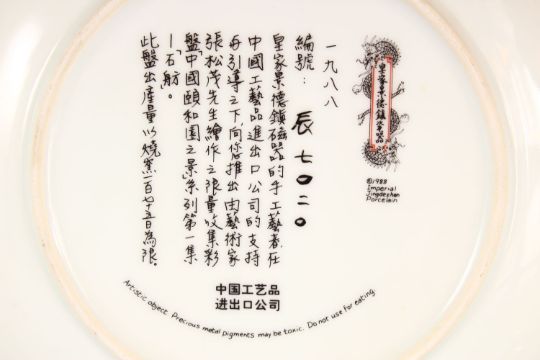 皇家景德鎮
©1988
Imperial
Jingdezhen
Porcelain
一九八八
編號: 辰 七〇二〇
皇家景德鎮磁器的手工藝者,在
中國工藝品進出口公司的支持
与引導之下,向您推出由藝術家
張松茂先生繪作之限量收集彩
盤"中國頤和園之景"系列第一集
—"石舫"。
此盤出產量以燒窯一百七十五日為限。
中国工艺品
进出口公司
Artistic object. Precious metal pigments may be toxic. Do not use for eating.